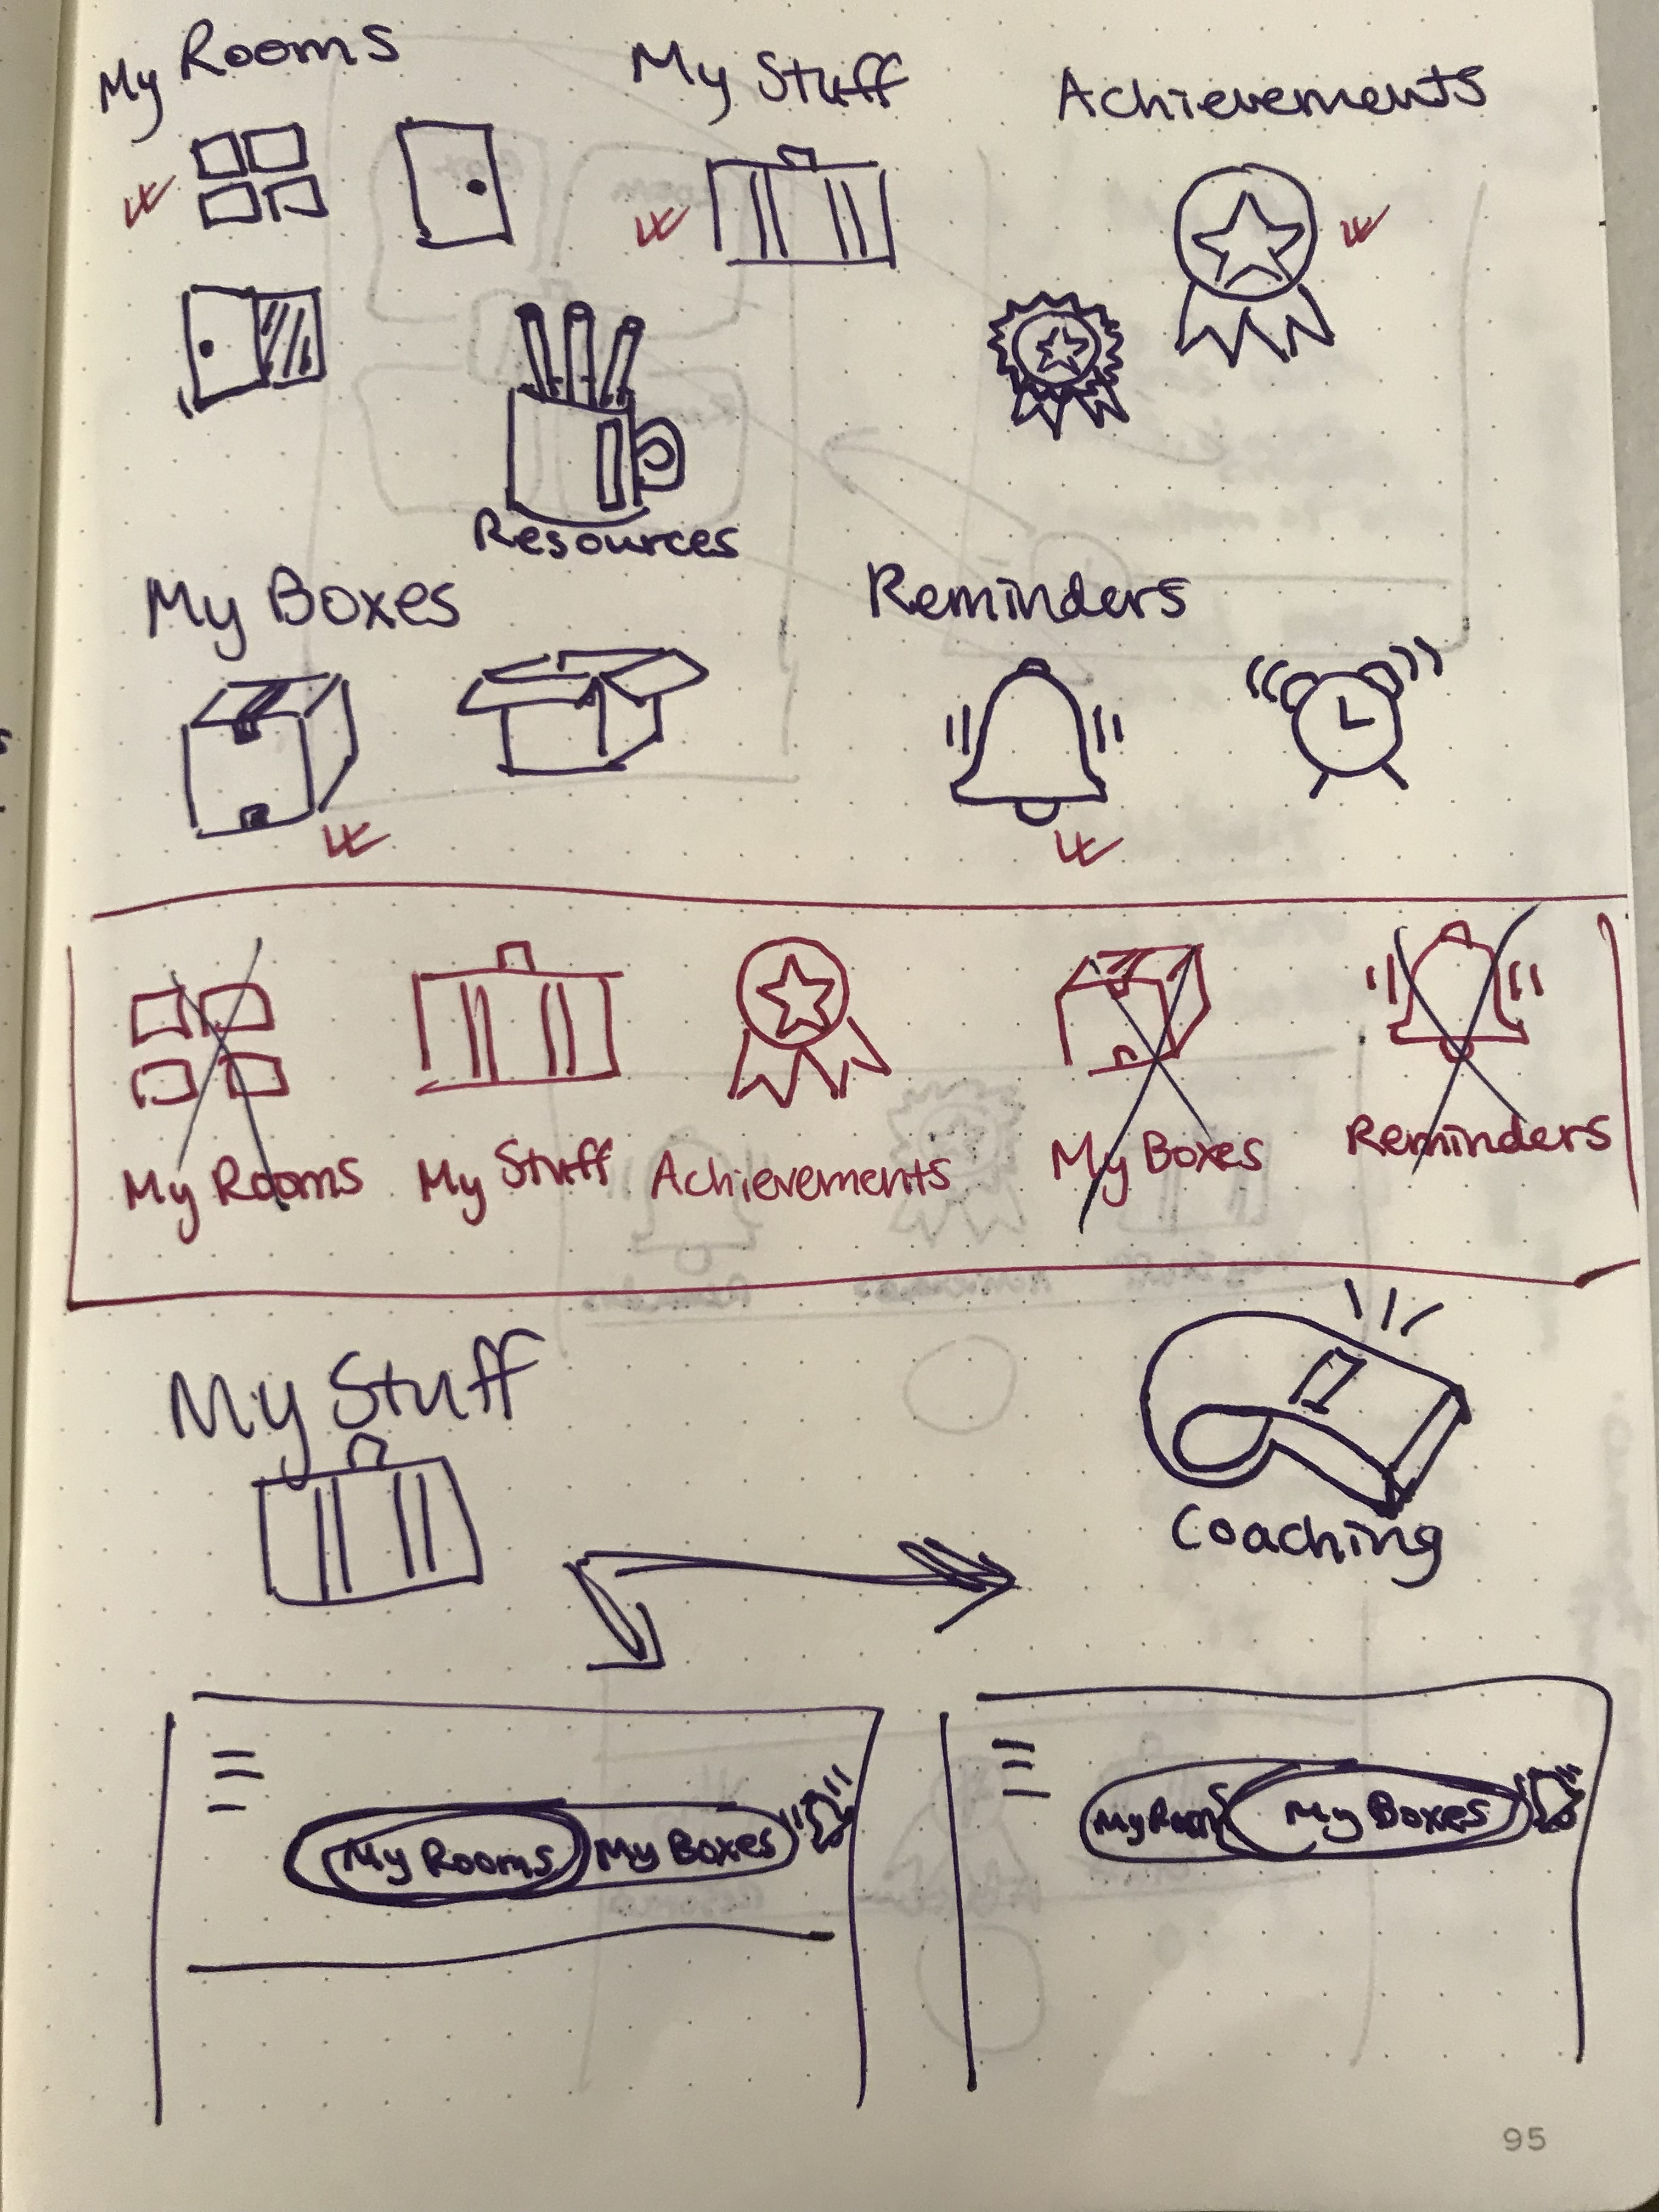 My Rooms
My Stuff
Achievements
Resources
My Boxes
Reminders
My Rooms
My Stuff
Achievements
My Boxes
Reminders
My Stuff
Coaching
My Rooms My Boxes
My Boxes
95